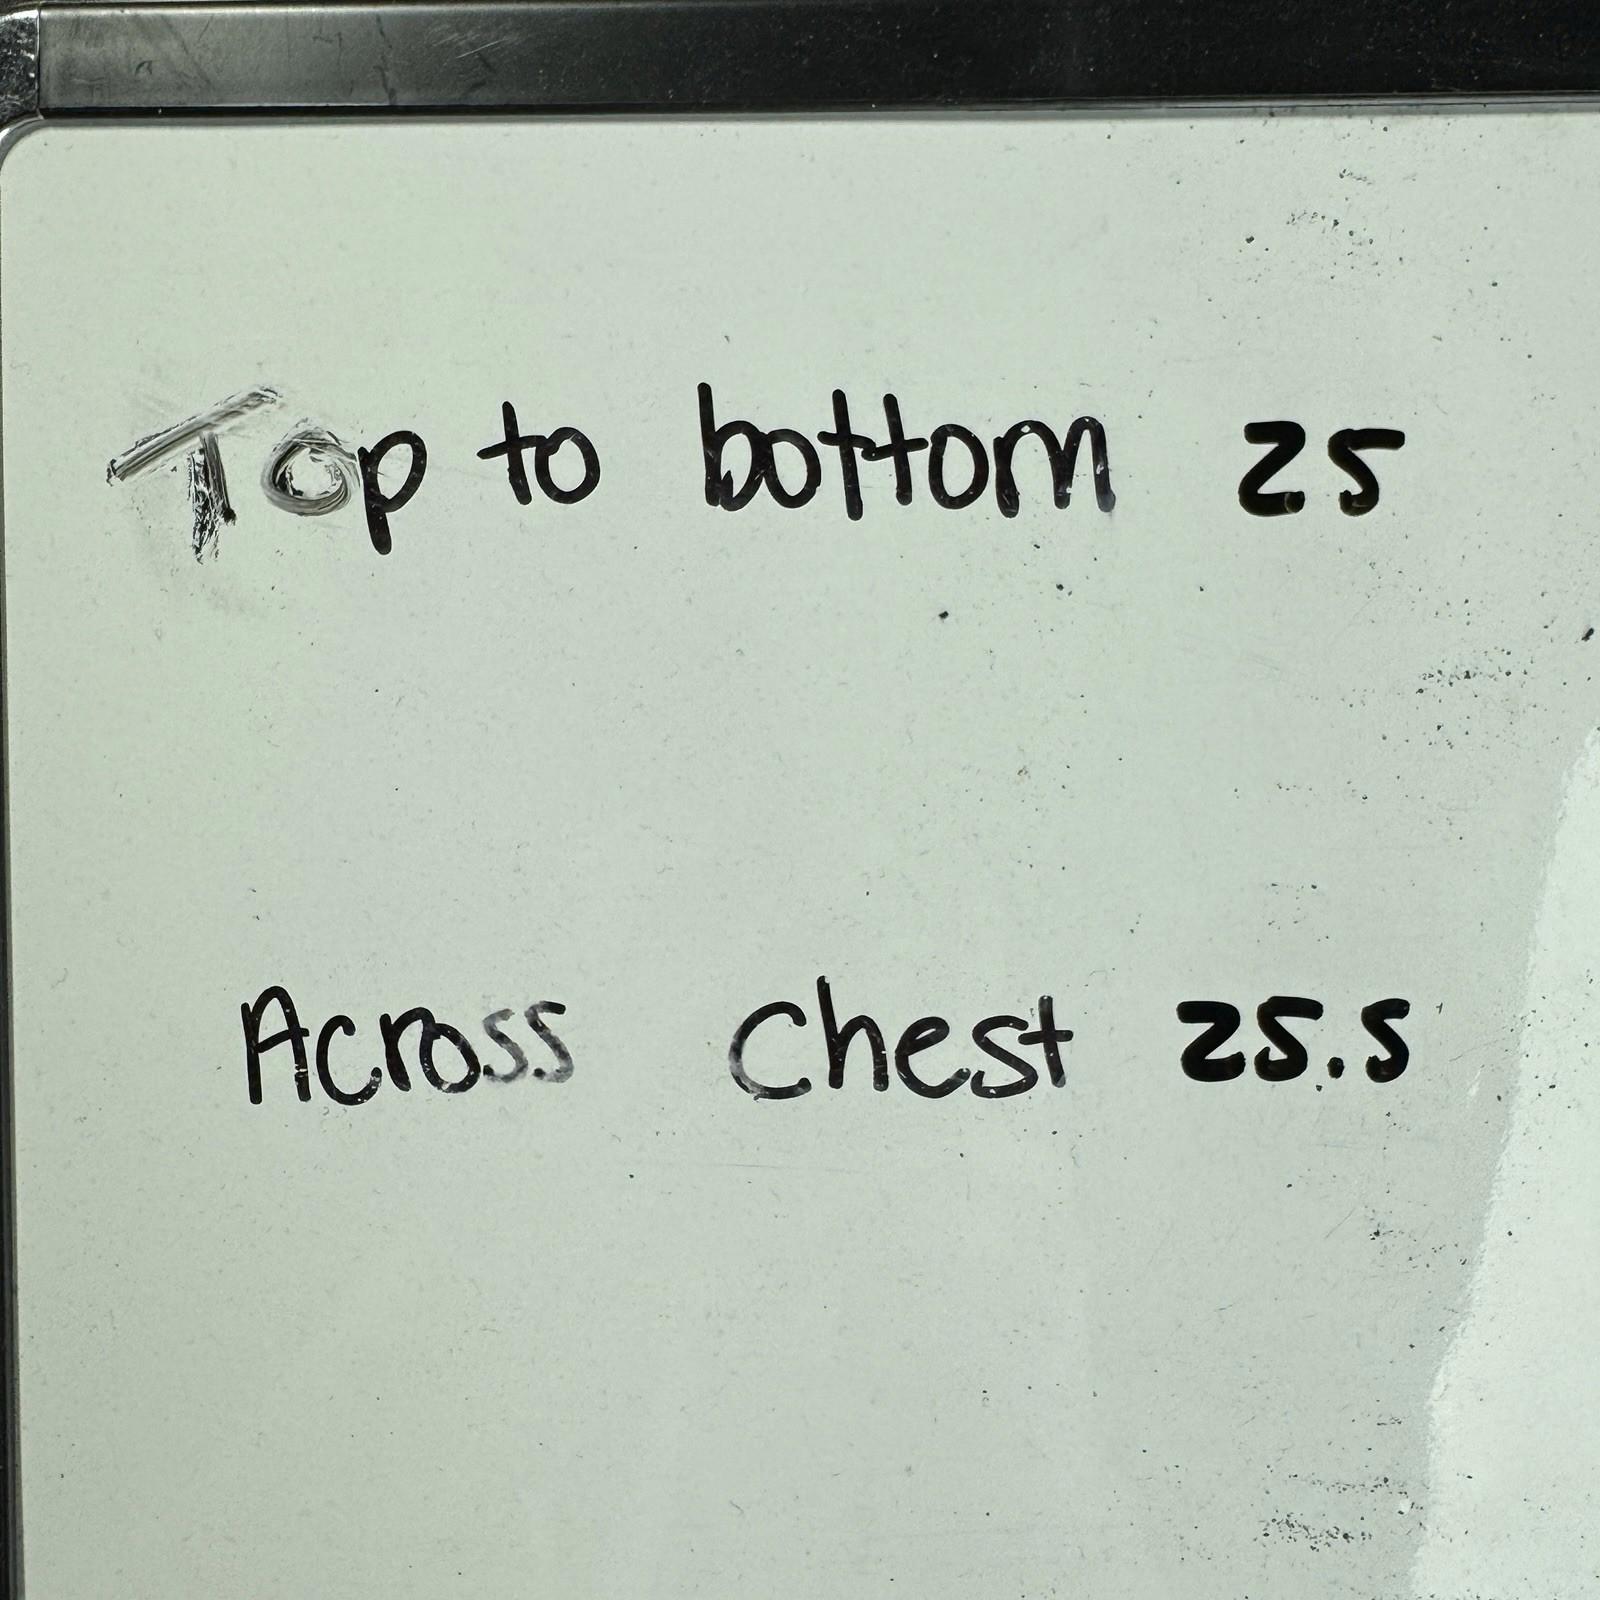 Top to bottom 25
Across Chest 25.5